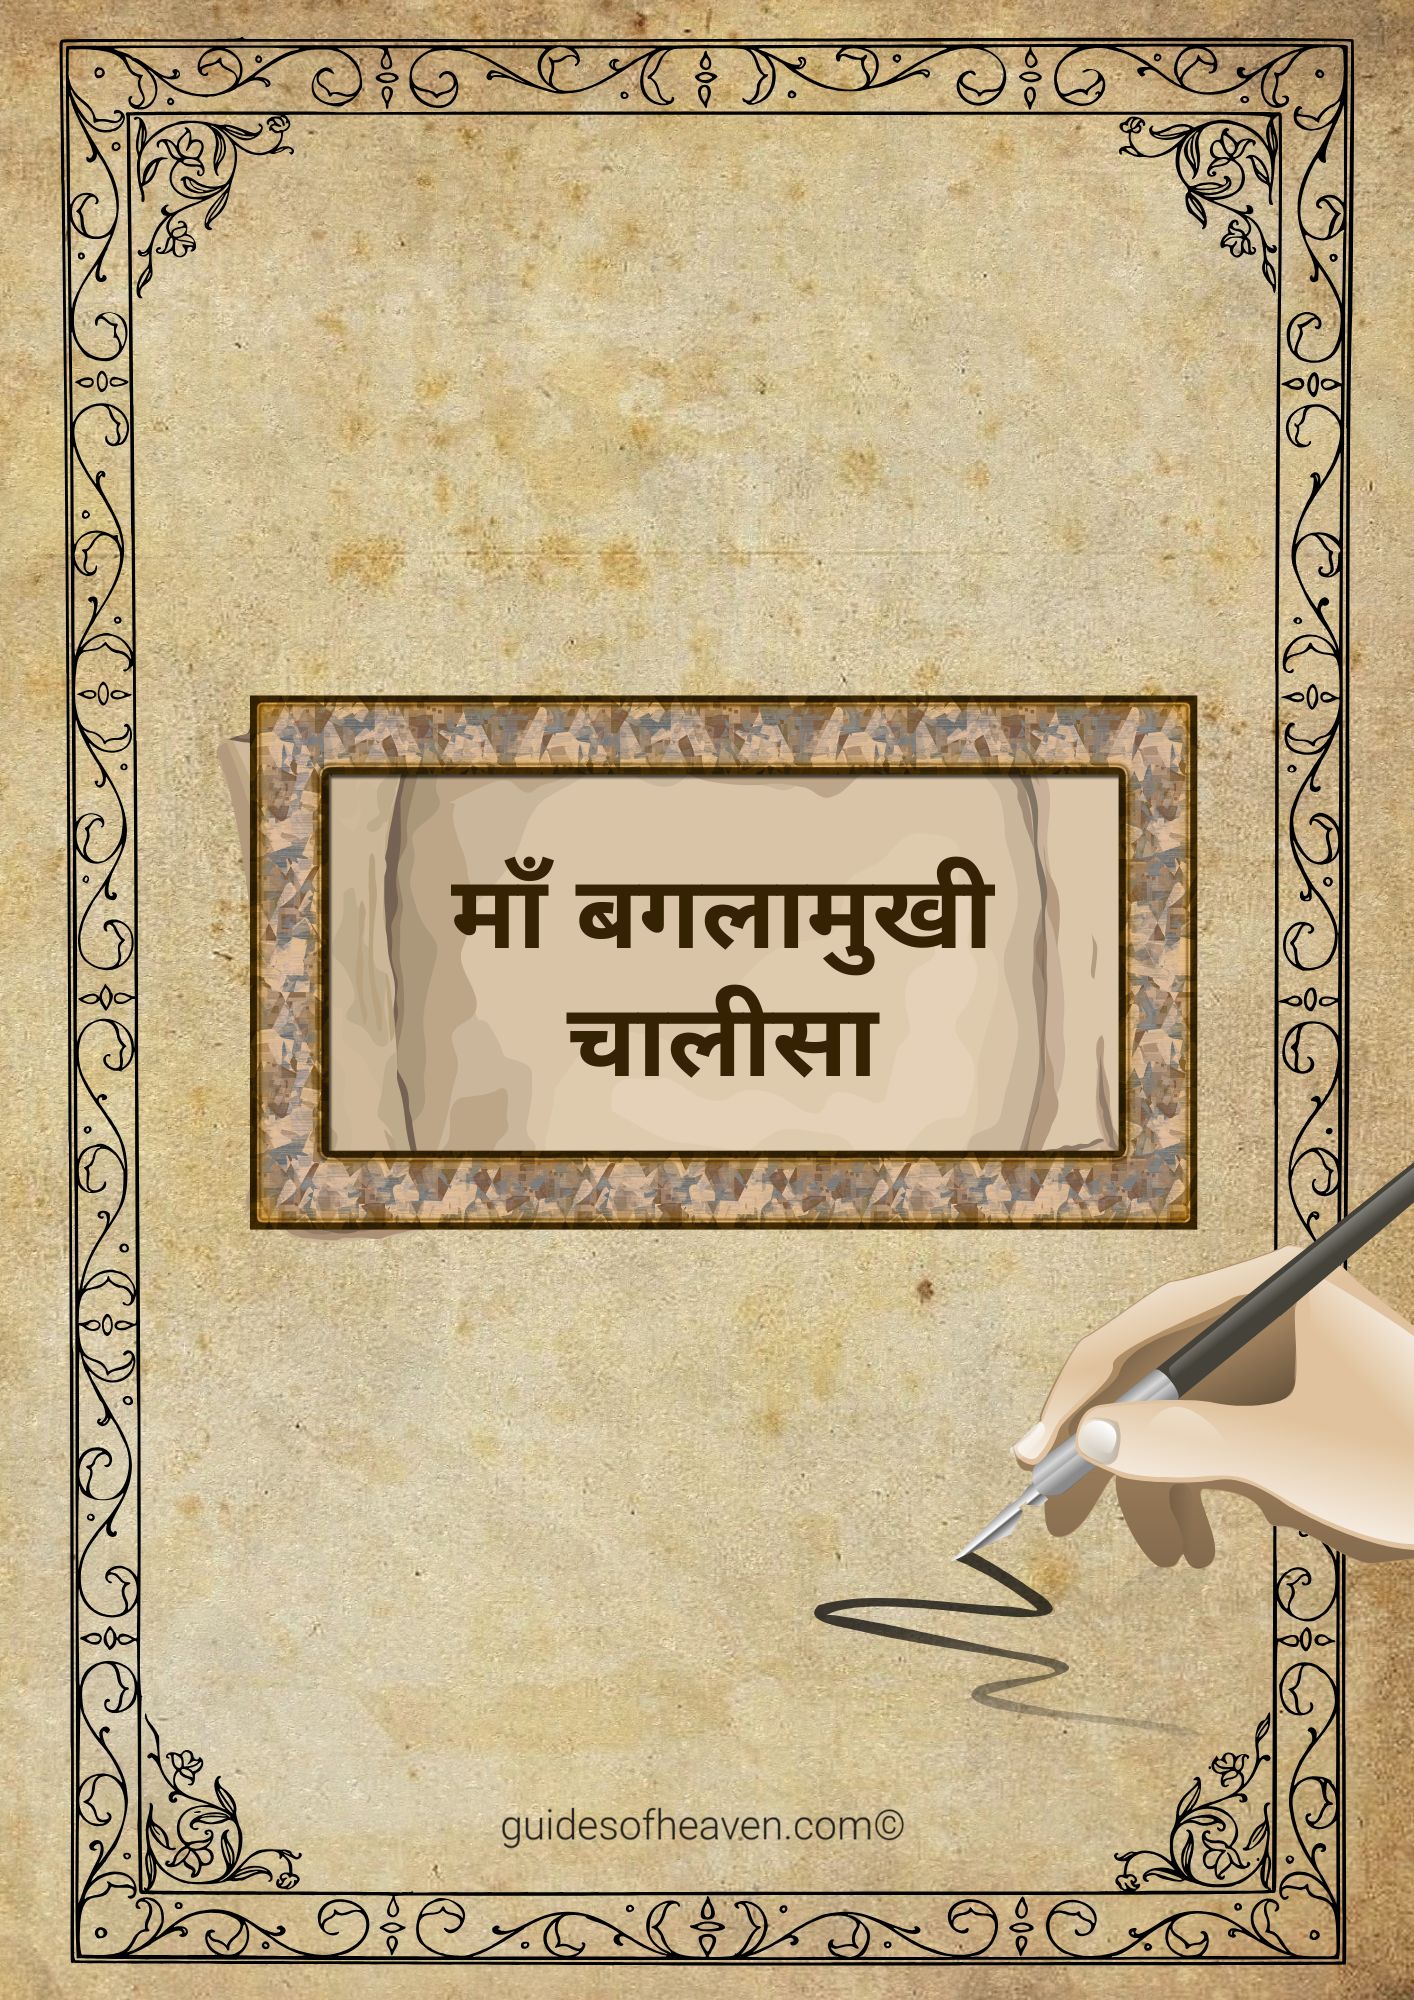 माँ बगलामुखी
चालीसा
guidesofheaven.com©